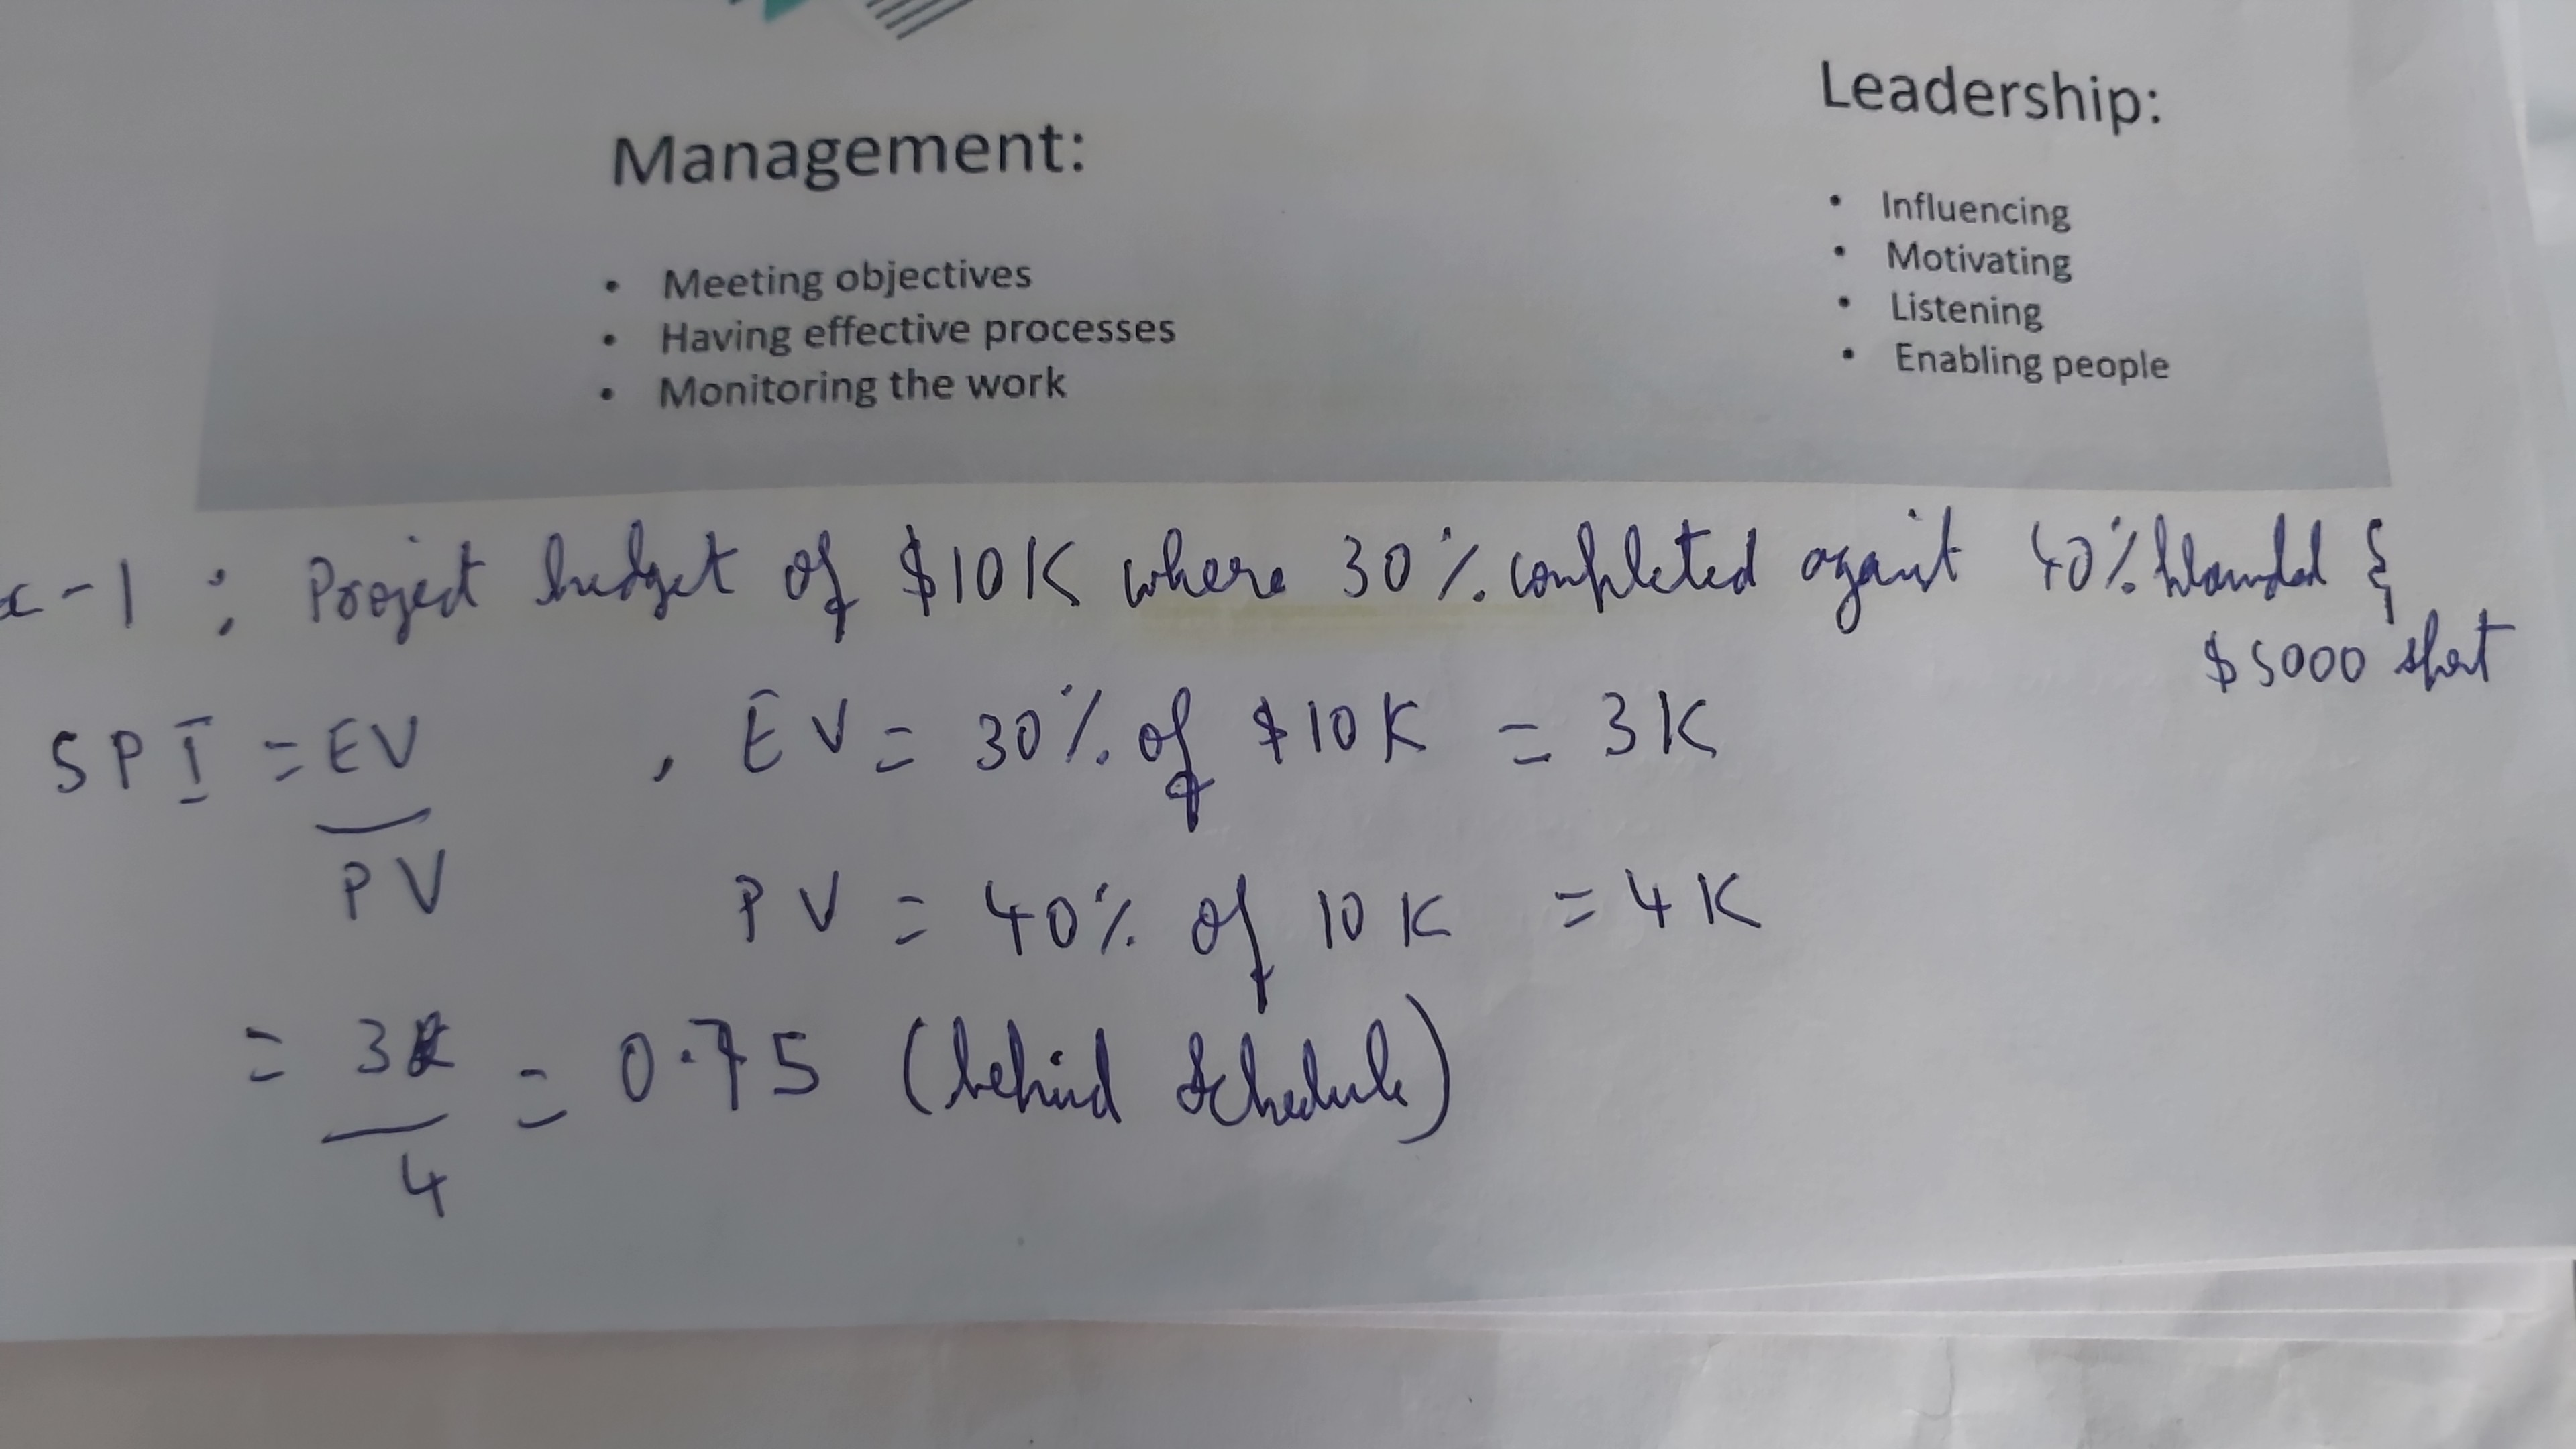 Management:
• Meeting objectives
• Having effective processes
• Monitoring the work
Leadership:
• Influencing
• Motivating
• Listening
• Enabling people
x - 1 : Project budget of $10K where 30% completed against 40% planned &
$5000 spent
SPI = EV / PV , EV = 30% of $10K = 3K
PV = 40% of 10K = 4K
= 3 / 4 = 0.75 (behind schedule)